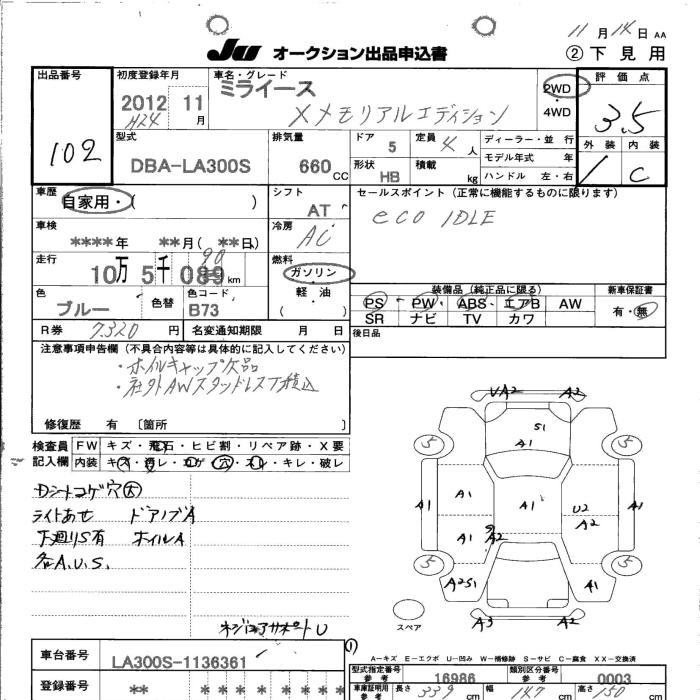 11月14日 AA
JU オークション出品申込書 ②下見用
出品番号 102
初度登録年月 2012 11月 H24
車名・グレード ミライース
Xメモリアルエディション
2WD・4WD
評価点 3.5
外装 内装
/ C
型式 DBA-LA300S
排気量 660CC
ドア 5
定員 4人
形状 HB
積載 kg
ディーラー・並行
モデル年式 年
ハンドル 左・右
車歴 自家用・( )
シフト AT
セールスポイント(正常に機能するものに限ります)
eco IDLE
車検 ****年 **月(**日)
冷房 AC
走行 10万5千089km 90
燃料 ガソリン・軽油( )
色 ブルー 色替 色コード B73
装備品(純正品に限る)
PS PW ABS エアB AW
SR ナビ TV カワ
新車保証書 有・無
R券 7320円 名変通知期限 月 日
後日品
注意事項申告欄(不具合内容等は具体的に記入してください)
・ホイルキャップ欠品
・社外AWスタッドレス積込
修復歴 有 〔箇所 〕
検査員記入欄
FW キズ・飛石・ヒビ割・リペア跡・X要
内装 キズ・汚レ・コゲ・穴・スレ・キレ・破レ
Dシートコゲ穴大
ライトあせ ドアノブA
下廻りS有 ホイルA
各A.U.S.
ネジコアサポートU
UA2 A2
S1
A1
5 5
A1 A1 A1 U2 A2 A1
A1 A2
5 5
A2S1 A1
A3 A2
スペア
A-キズ E-エクボ U-凹み W-補修跡 S-サビ C-腐食 XX-交換済
車台番号 LA300S-1136361
(1)
型式指定番号 参考 16986
類別区分番号 参考 0003
登録番号 ** * * * * * *
車庫証明用 参考 長さ 339cm 幅 147cm 高さ 150cm